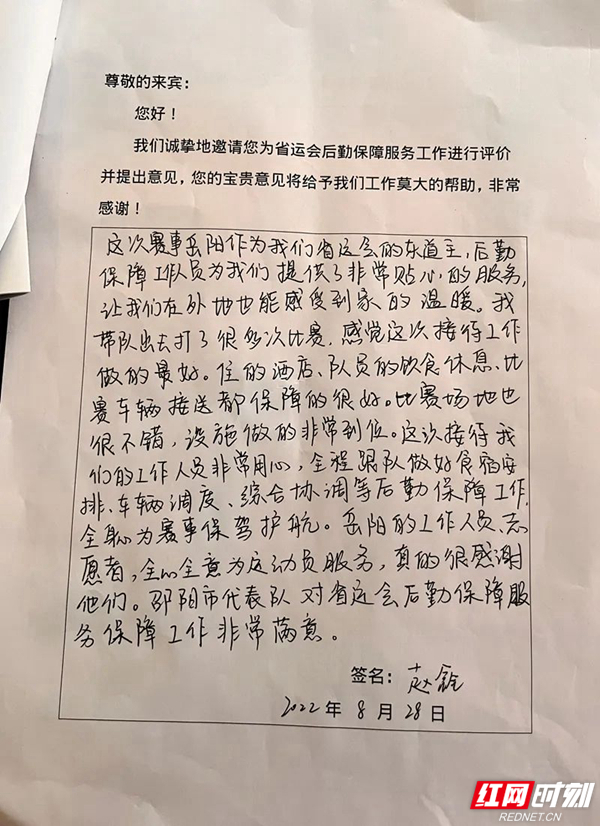 尊敬的来宾：
您好！
我们诚挚地邀请您为省运会后勤保障服务工作进行评价
并提出意见，您的宝贵意见将给予我们工作莫大的帮助，非常
感谢！
这次赛事岳阳作为我们省运会的东道主，后勤
保障工作人员为我们提供了非常贴心的服务，
让我们在外地也能感受到家的温暖。我
带队出去打了很多次比赛，感觉这次接待工作
做的最好。住的酒店、队员的饮食休息、比
赛车辆接送都保障的很好。比赛场地也
很不错，设施做的非常到位。这次接待我
们的工作人员非常用心，全程跟队做好食宿安
排、车辆调度、综合协调等后勤保障工作，
全心为赛事保驾护航。岳阳的工作人员、志
愿者，全心全意为运动员服务，真的很感谢
他们。邵阳市代表队对省运会后勤保障服
务保障工作非常满意。
签名：赵
2022年8月28日
红网时刻
REDNET.CN